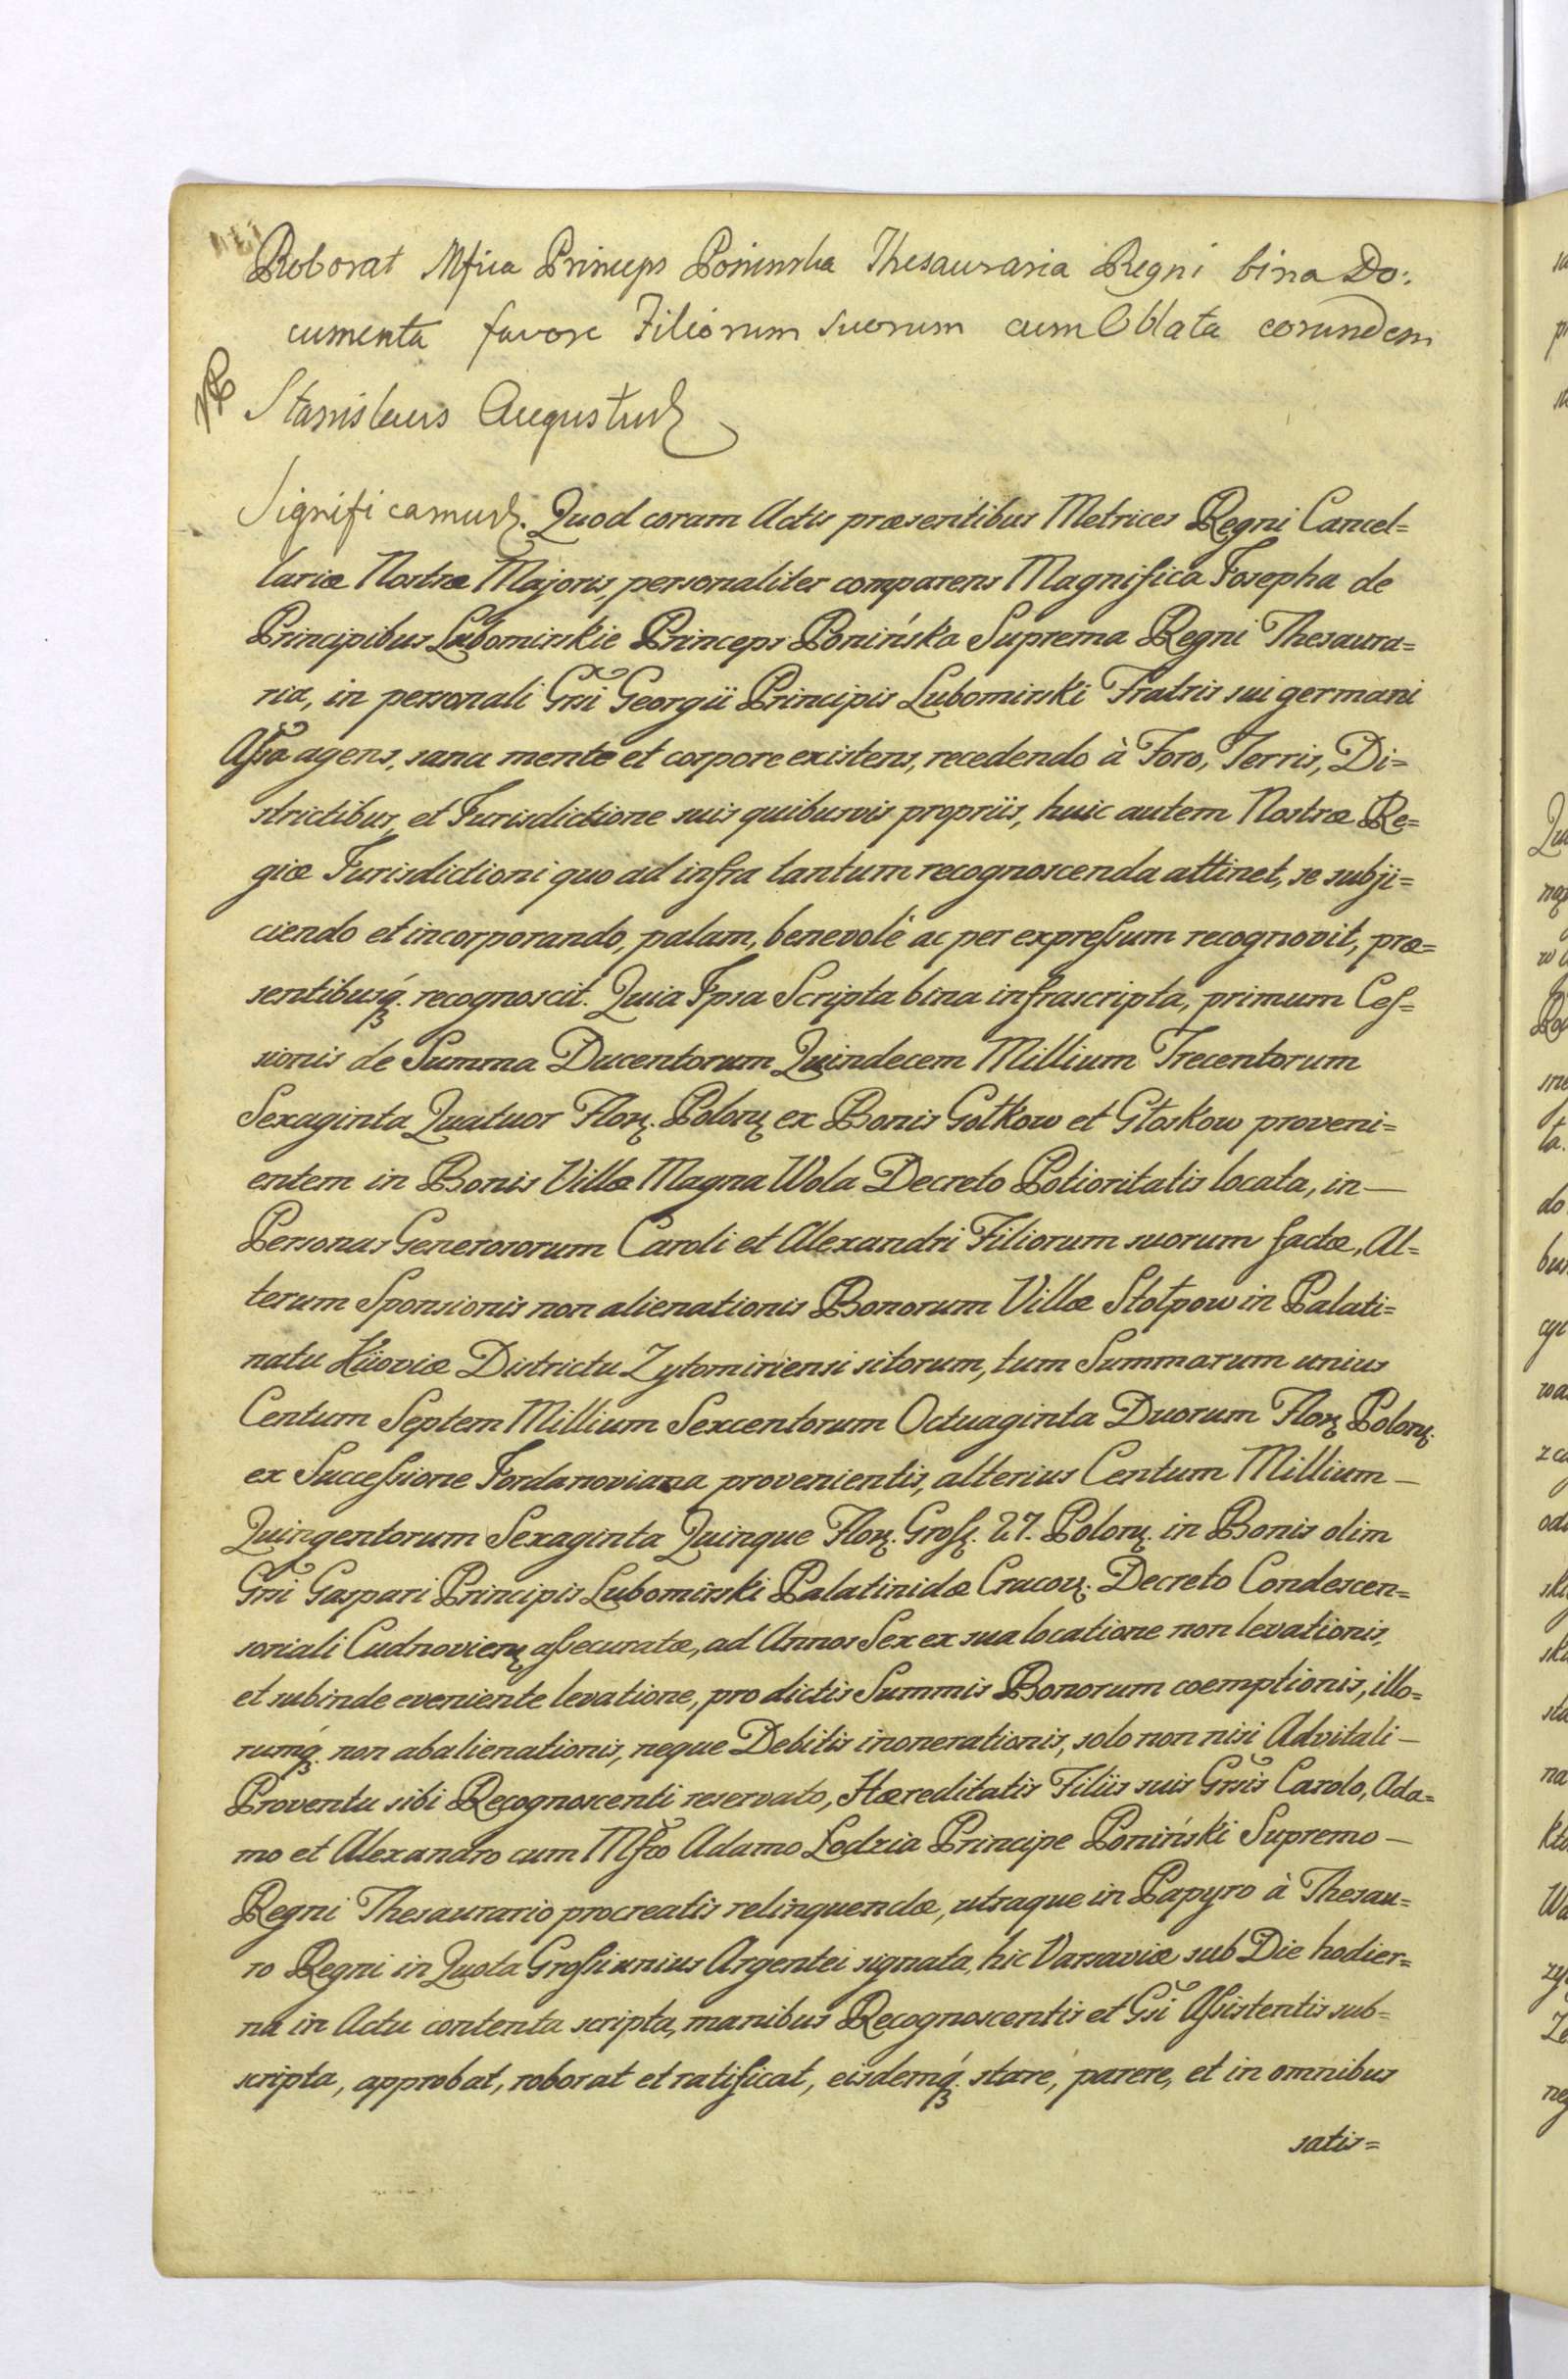 Roborat Mfica Princeps Poninska Thesauraria Regni bina Do:
cumenta favore Filiorum suorum cum Oblata eorundem
Stanislaus Augustus
Significamus. Quod coram Actis præsentibus Metrices Regni Cancel=
lariæ Nostræ Majoris, personaliter comparens Magnifica Josepha de
Principibus Lubomirskie Princeps Ponińska Suprema Regni Thesaura=
ria, in personali Grsi Georgii Principis Lubomirski Fratris sui germani
Assa agens, sana mente et corpore existens, recedendo à Foro, Terris, Di=
strictibus, et Jurisdictione suis quibusvis propriis, huic autem Nostræ Re=
giæ Jurisdictioni quo ad infra tantum recognoscenda attinet, se subji=
ciendo et incorporando, palam, benevolè ac per expressum recognovit, præ=
sentibusq́ꝫ. recognoscit. Quia Ipsa Scripta bina infrascripta, primum Ces=
sionis de Summa Ducentorum Quindecem Millium Trecentorum
Sexaginta Quatuor Florꝫ. Polonꝫ ex Bonis Gołkow et Głoskow proveni=
entem in Bonis Villæ Magna Wola Decreto Potioritatis locata, in —
Personas Generosorum Caroli et Alexandri Filiorum suorum factæ, Al=
terum Sponsionis non alienationis Bonorum Villæ Stołpow in Palati=
natu Kiioviæ Districtu Zytomiriensi sitorum, tum Summarum unius
Centum Septem Millium Sexcentorum Octuaginta Duorum Florꝫ Polonꝫ.
ex Successione Jordanoviana provenientis, alterius Centum Millium —
Quingentorum Sexaginta Quinque Florꝫ. Grossꝫ. 27. Polonꝫ. in Bonis olim
Grsi Gaspari Principis Lubomirski Palatinidæ Cracovꝫ. Decreto Condescen=
soriali Cudnovienꝫ assecuratæ, ad Annos Sex ex sua locatione non levationis,
et subinde eveniente levatione, pro dictis Summis Bonorum coemptionis, illo=
rumq́ꝫ. non abalienationis, neque Debitis inonerationis, solo non nisi Advitali —
Proventu sibi Recognoscenti reservato, Hæreditatis Filiis suis Grsis Carolo, Ada=
mo et Alexandro cum Mfco Adamo Łodzia Principe Poniński Supremo —
Regni Thesaurario procreatis relinquendæ, utraque in Papyro à Thesau=
ro Regni in Quota Grossi unius Argentei signata, hic Varsaviæ sub Die hodier=
na in Actu contenta scripta, manibus Recognoscentis et Gsi Assistentis sub=
scripta, approbat, roborat et ratificat, eisdemq́ꝫ. stare, parere, et in omnibus
satis=